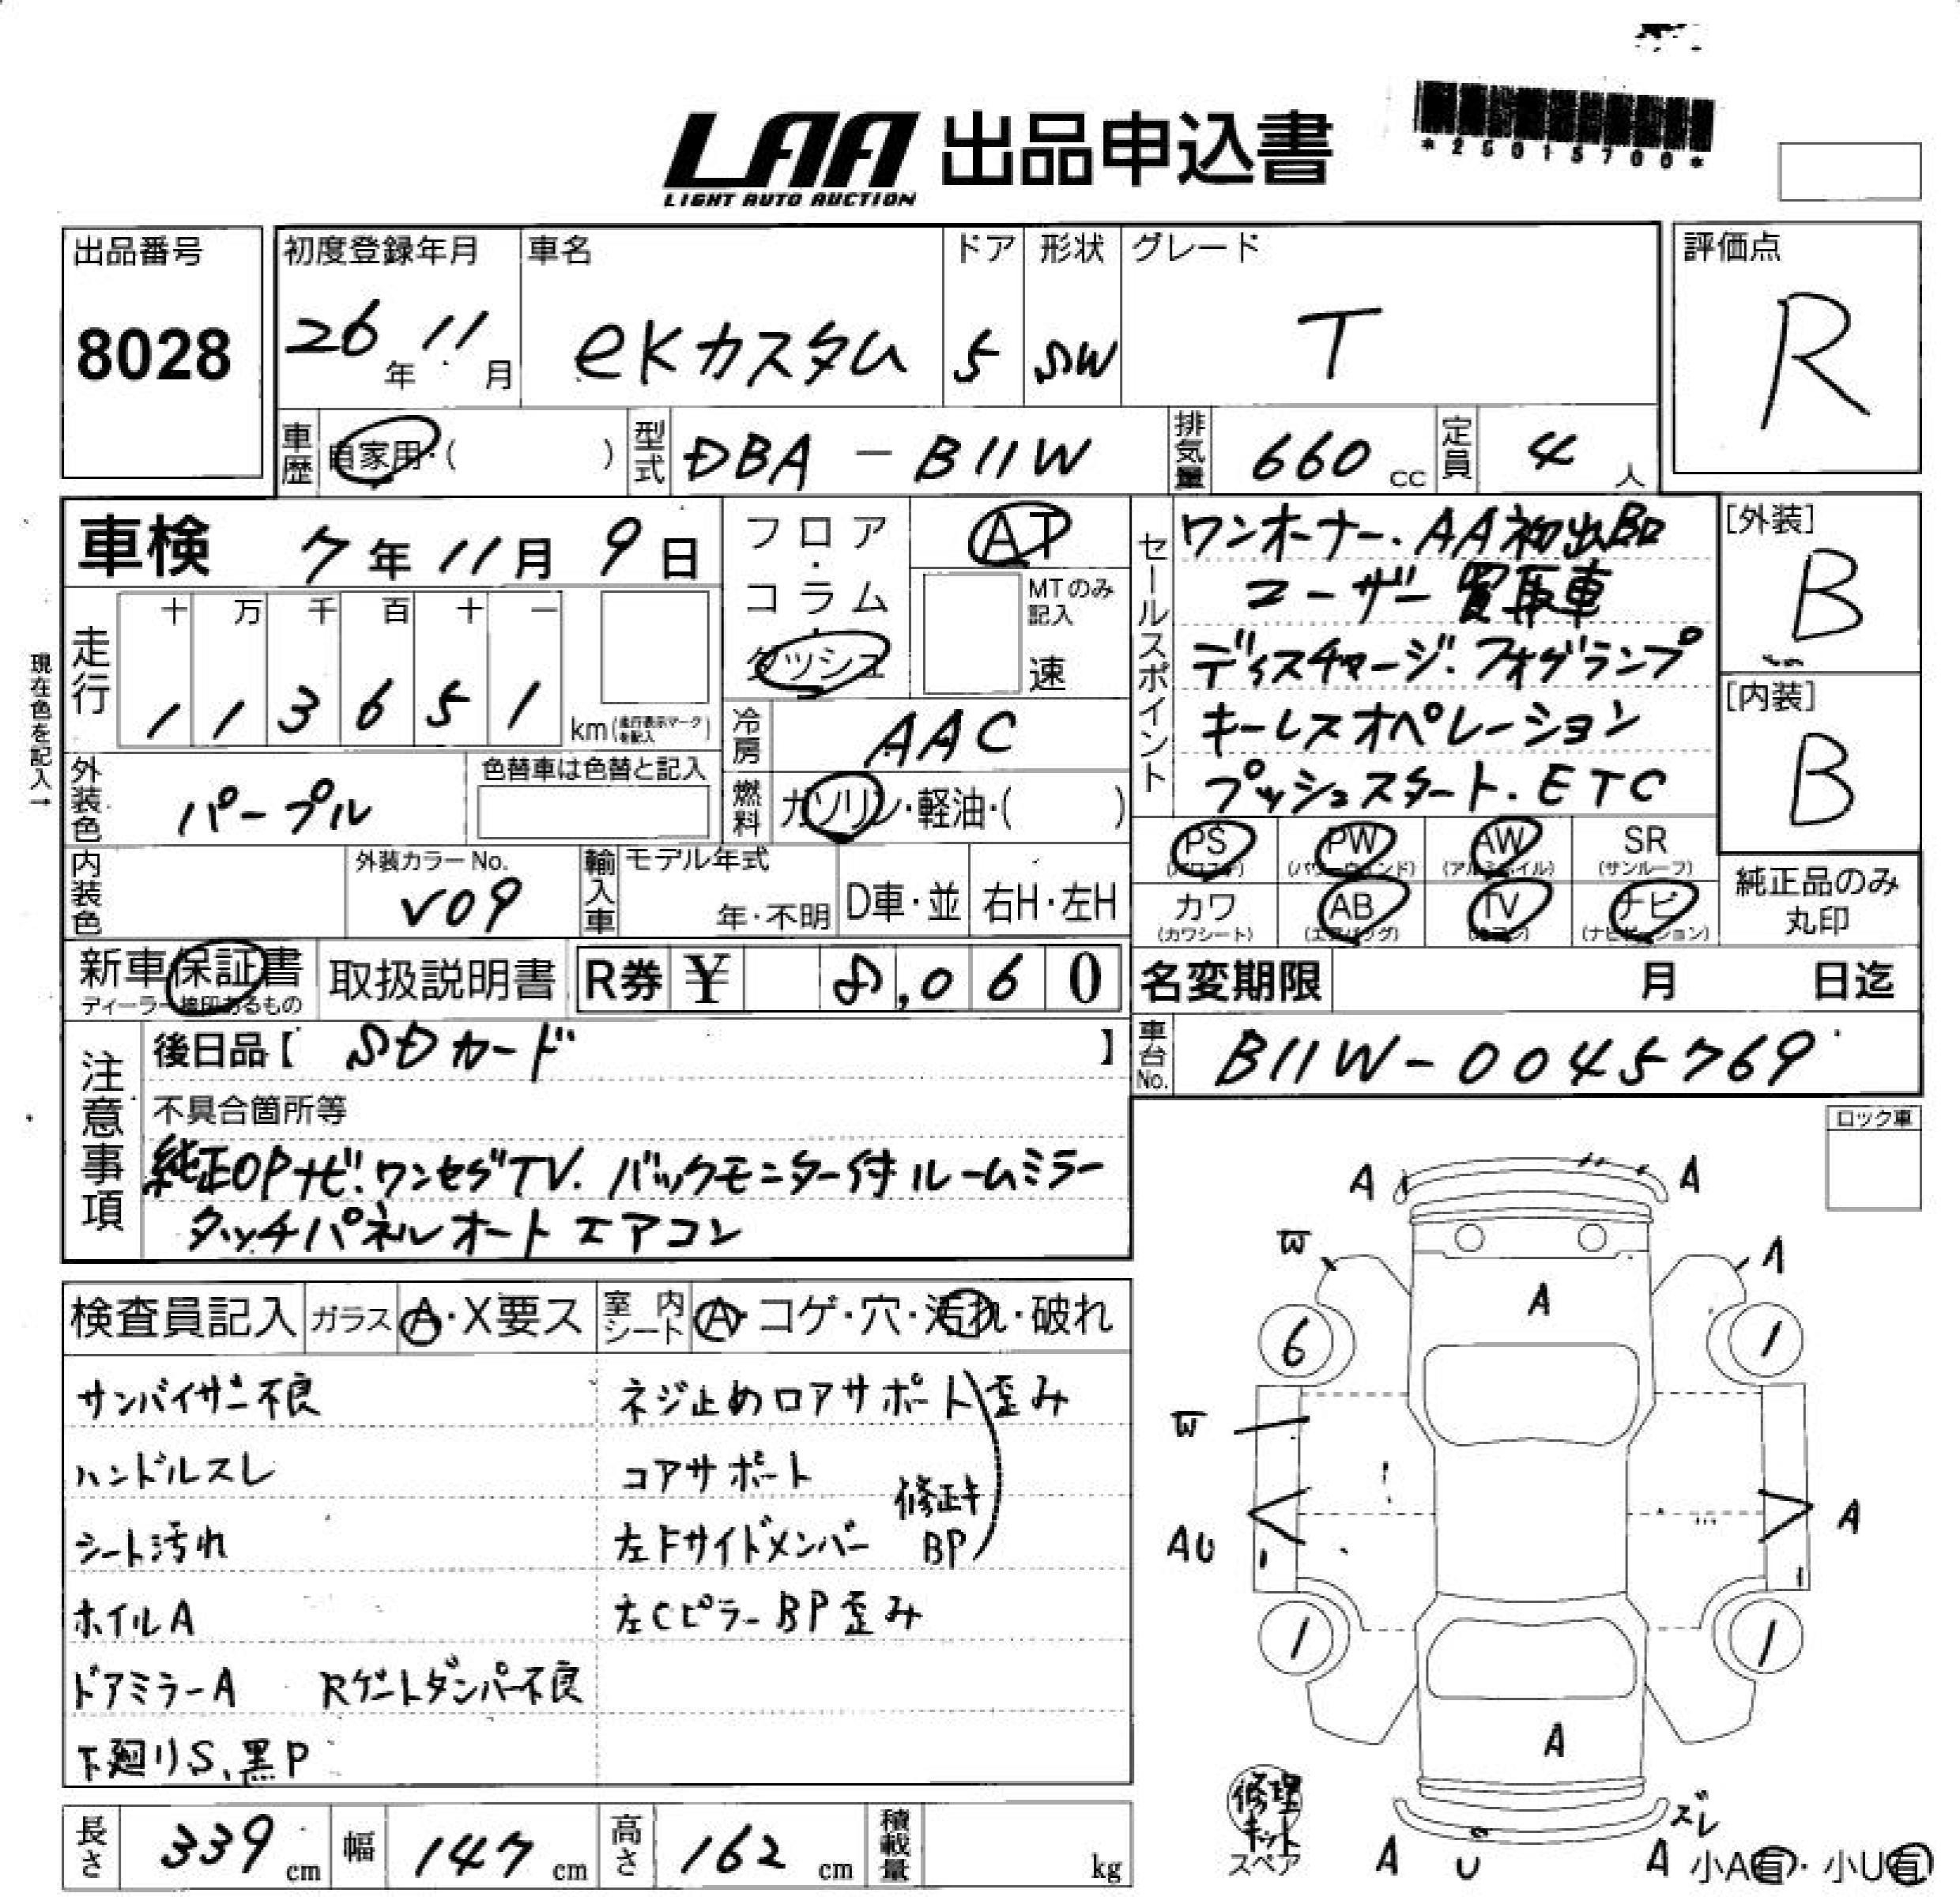 LAA 出品申込書
LIGHT AUTO AUCTION
*25015700*
出品番号
8028
初度登録年月
26年 11月
車名
eKカスタム
ドア
5
形状
SW
グレード
T
評価点
R
車歴
自家用・( )
型式
DBA-B11W
排気量
660 cc
定員
4人
現在色を記入→
車検 7年11月9日
走行
十 万 千 百 十 一
1 1 3 6 5 1
km(走行表示マークを記入)
フロア・コラム・ダッシュ
AT
MTのみ記入
速
冷房
AAC
燃料
ガソリン・軽油・( )
外装色
パープル
色替車は色替と記入
内装色
外装カラーNo.
V09
輸入車
モデル年式
年・不明
D車・並
右H・左H
セールスポイント
ワンオーナー.AA初出品
ユーザー買取車
ディスチャージ.フォグランプ
キーレスオペレーション
プッシュスタート.ETC
[外装]
B
[内装]
B
PS
(パワステ)
PW
(パワーウィンド)
AW
(アルミホイル)
SR
(サンルーフ)
カワ
(カワシート)
AB
(エアバッグ)
TV
(テレビ)
ナビ
(ナビゲーション)
純正品のみ
丸印
新車保証書
ディーラー検印あるもの
取扱説明書
R券 ¥ 8,060
名変期限 月 日迄
車台No.
B11W-0045769
注意事項
後日品【 SDカード 】
不具合箇所等
純正OPナビ.ワンセグTV.バックモニター付ルームミラー
タッチパネルオートエアコン
ロック車
検査員記入
ガラス A・X要ス
室内シート A・コゲ・穴・汚れ・破れ
サンバイザー不良
ハンドルスレ
シート汚れ
ホイルA
ドアミラーA Rゲートダンパー不良
下廻りS、黒P
ネジ止めロアサポート歪み
コアサポート
修正キ
左Fサイドメンバー BP
左CピラーBP歪み
A A
W A
A
6 1
W
AU A
1 1
A
修理キット
スペア
ズレ
A U A
小A有・小U有
長さ 339 cm
幅 147 cm
高さ 162 cm
積載量 kg